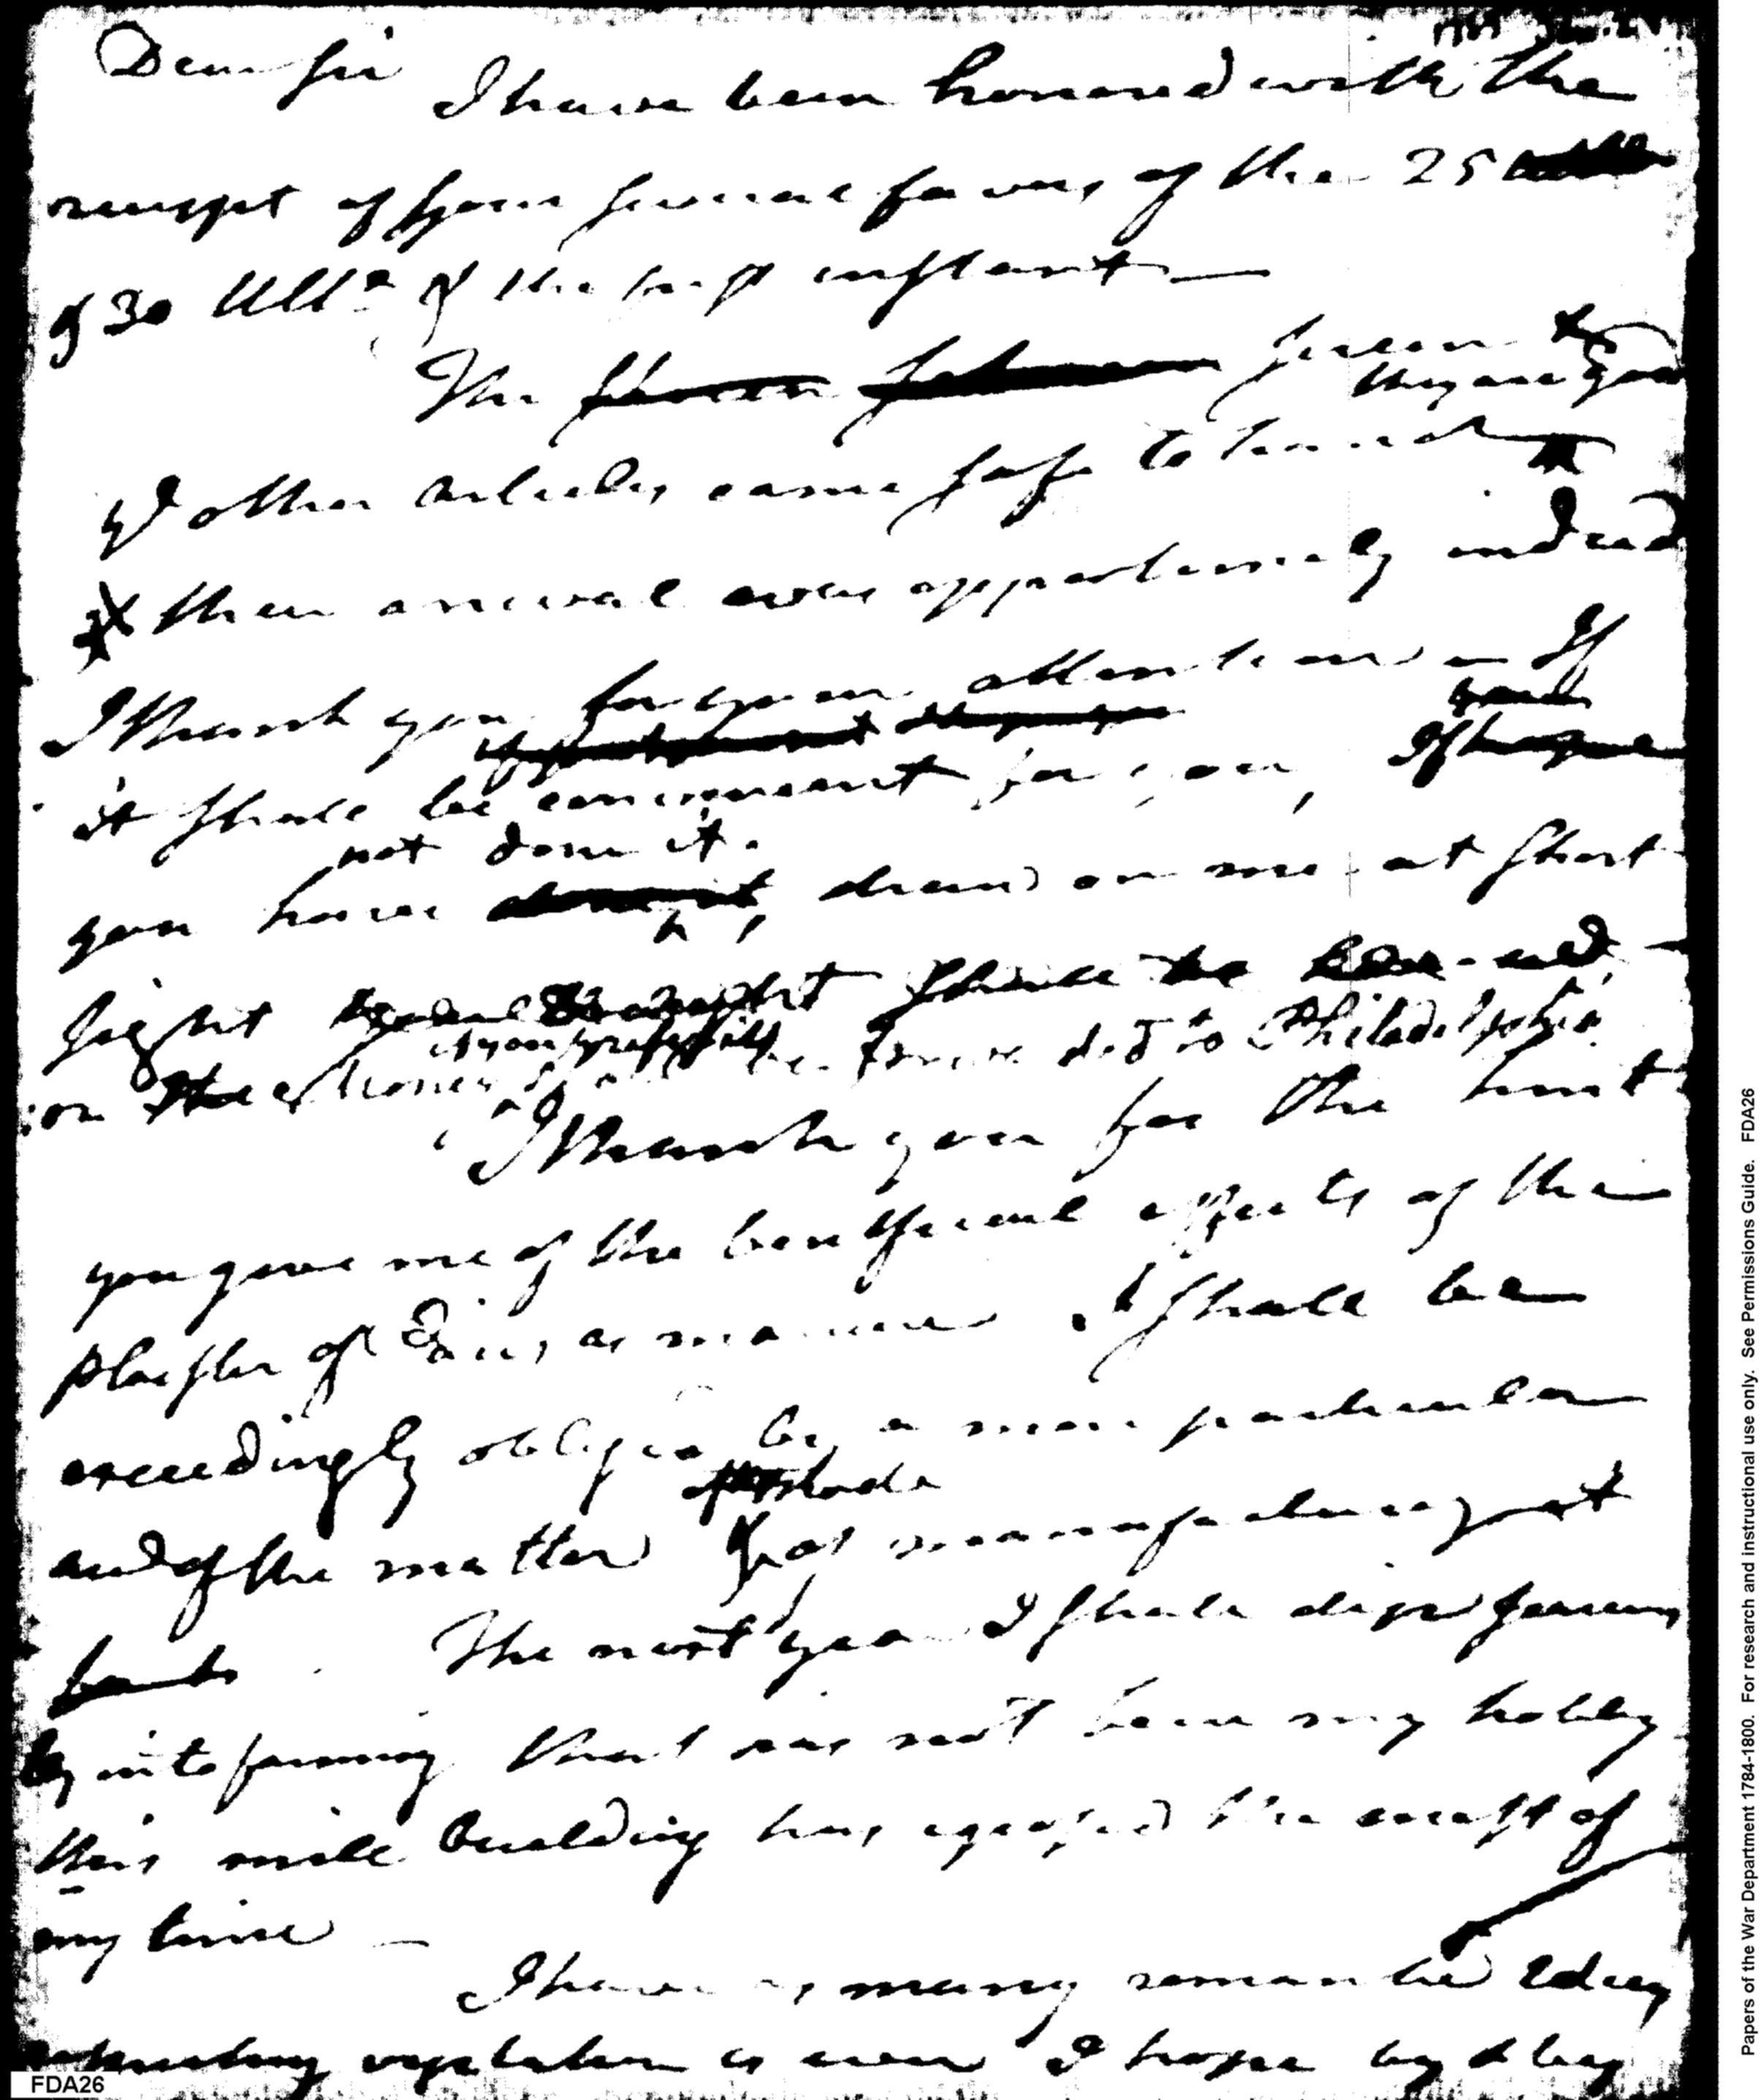 Dear Sir
I have been honored with the
receipt of your several favors of the 25
& 30 Ulto & the first instant —
The screen
they are good
& other articles came safe to hand
their arrival was opportunely indeed
I thank you for your attention — If
it shall be convenient for you,
not done it.
you have draw on me at short
sight
if you prefer it
or the Money shall be forwarded to Philadelphia
I thank you for the hint
you gave me of the beneficial effects of the
plaister of Paris, as manure I shall be
exceedingly obliged by a more particular
and of the matter
The next year I shall dip
into farming that has not been my hobby
this mill building has the most of
my time —
I have as many romantic Ideas
vegetation as ever I hope by & by
FDA26
Papers of the War Department 1784-1800. For research and instructional use only. See Permissions Guide. FDA26